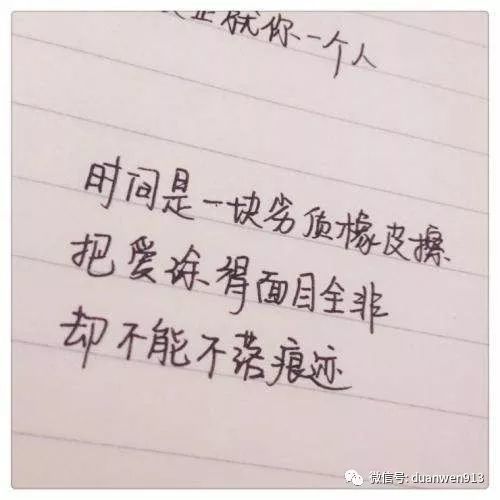 就你一个人
时间是一块劣质橡皮擦
把爱涂得面目全非
却不能不落痕迹
微信号: duanwen913